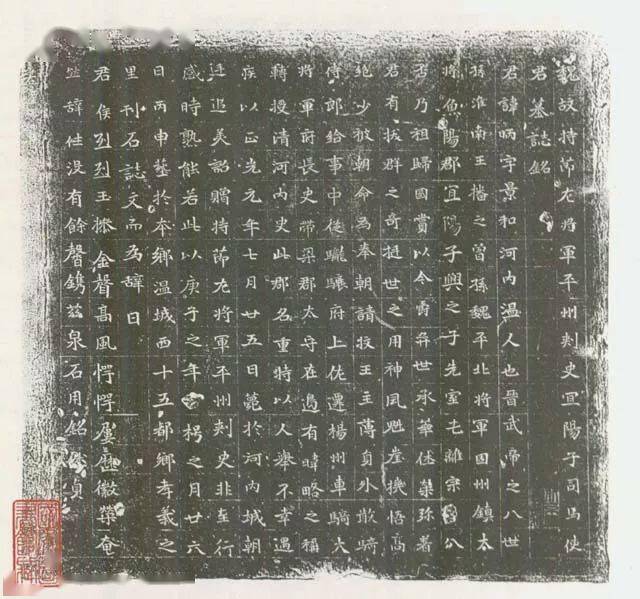 魏故持節左將軍平州刾史宜陽子司馬使
君墓誌銘
君諱昞字景和河內溫人也晉武帝之八世
孫淮南王播之曾孫魏平北將軍固州鎮大
將魚陽郡宜陽子興之子先室屯離宗胄公
否乃祖歸國賞以今爵弈世承華休榮弥著
君有拔群之奇挺世之用神風魁崖機悟高
絕少被朝命為奉朝請牧王主薄員外散騎
侍郎給事中從驤驤府上佐遷楊州車騎大
將軍府長史帶梁郡太守在邊有暐略之稱
轉授清河內史此郡名重特以人舉不幸遇
疾以正光元年七月廿五日薨於河內城朝
廷追美詔贈持節左將軍平州刾史非至行
感時熟能若此以庚子之年玄枵之月廿六
日丙申塟於本鄉溫城西十五都鄉孝義之
里刊石誌文而為辭曰
君侯烈烈玉操金聲高風愕愕屢歷徽榮奄
辭位沒有餘馨鐫茲泉石用銘 貞